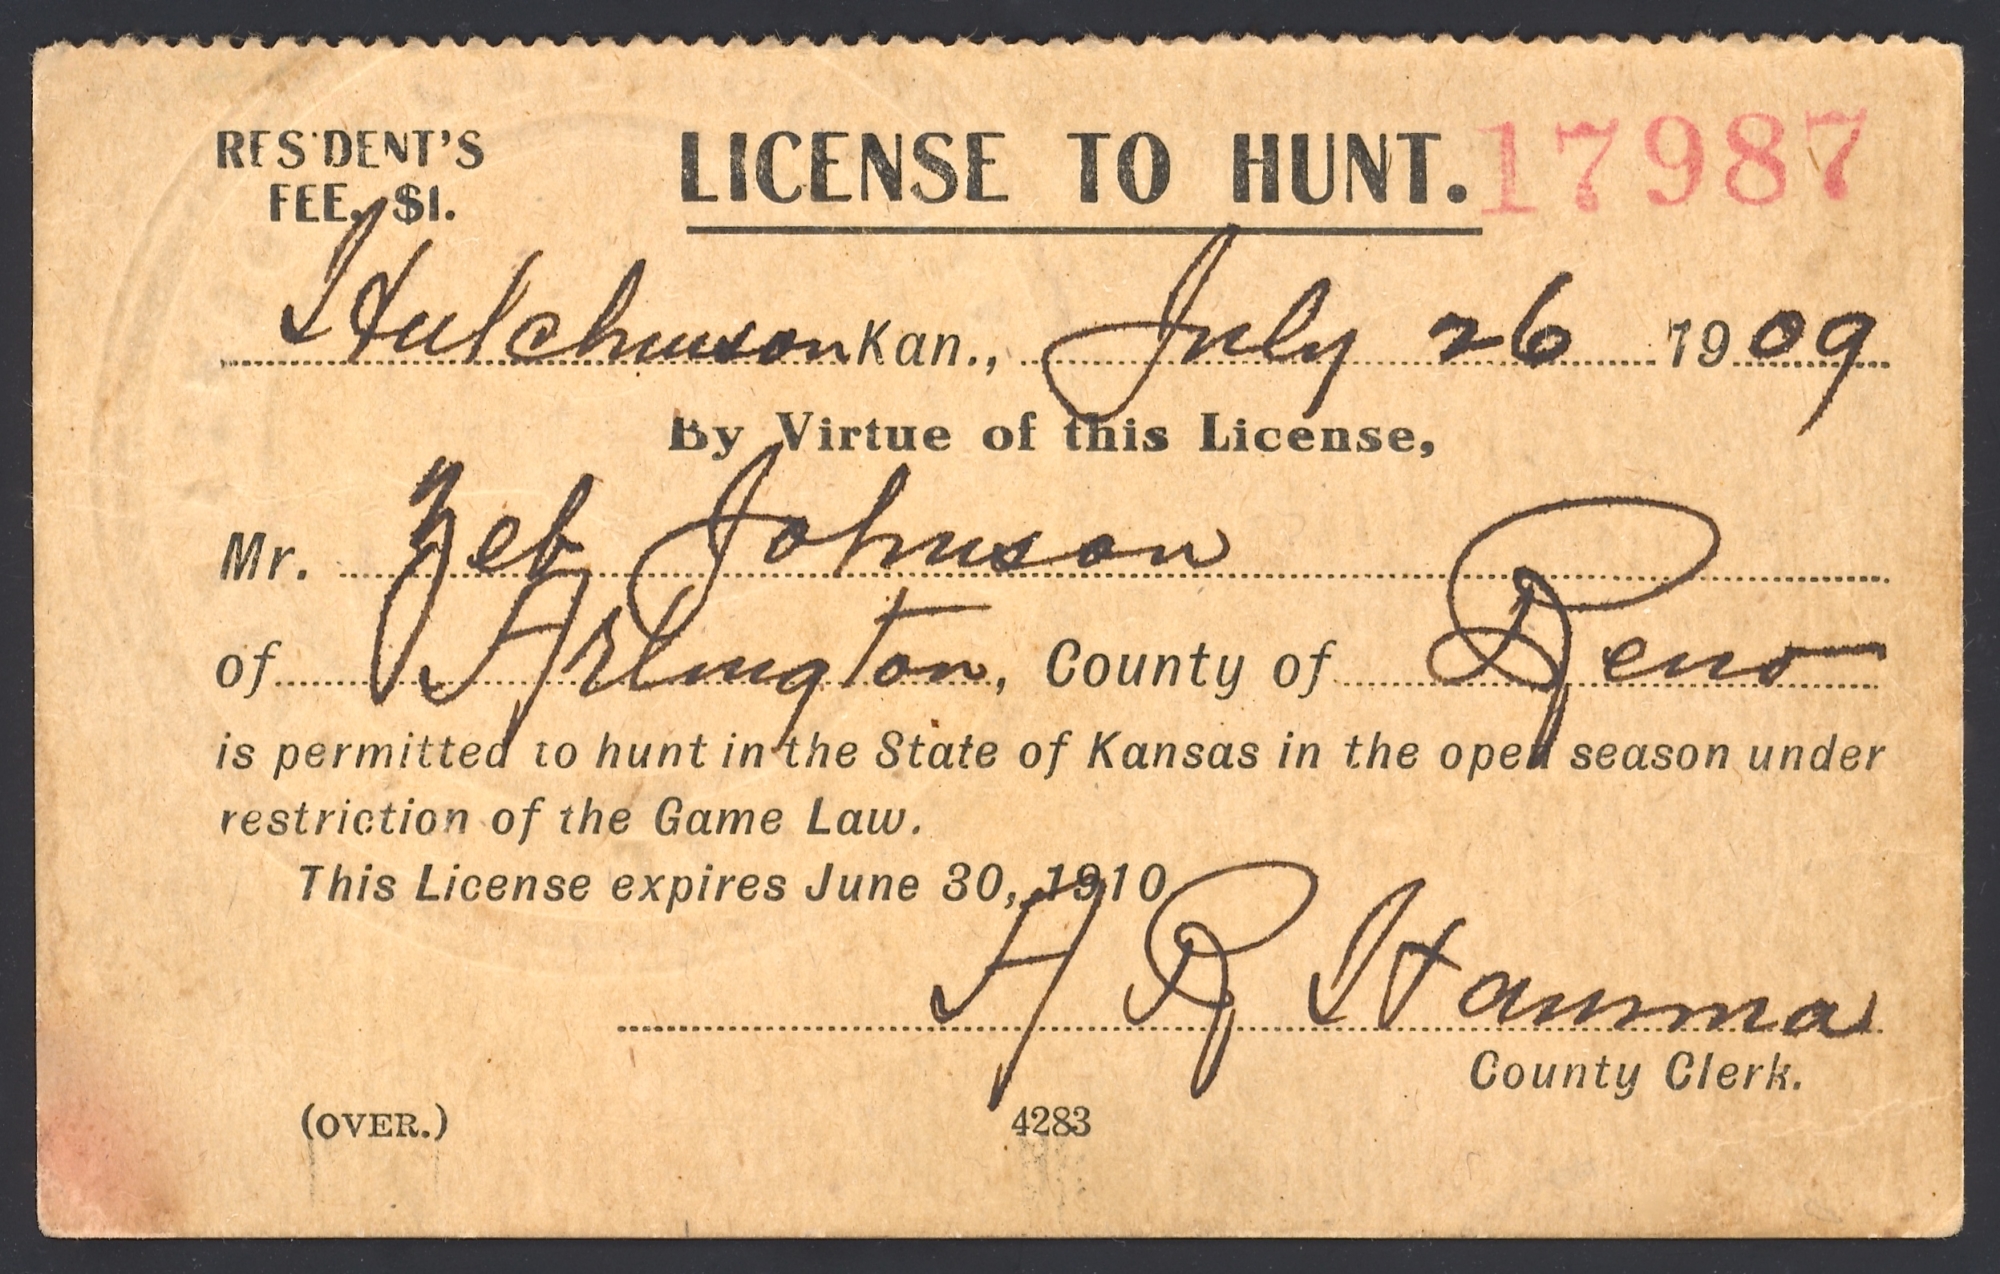 RESIDENT'S
FEE. $1.
LICENSE TO HUNT. 17987
Hutchinson Kan., July 26 1909
By Virtue of this License,
Mr. Zeb Johnson
of Arlington, County of Reno
is permitted to hunt in the State of Kansas in the open season under
restriction of the Game Law.
This License expires June 30, 1910
A R Hamma
County Clerk.
(OVER.)
4283